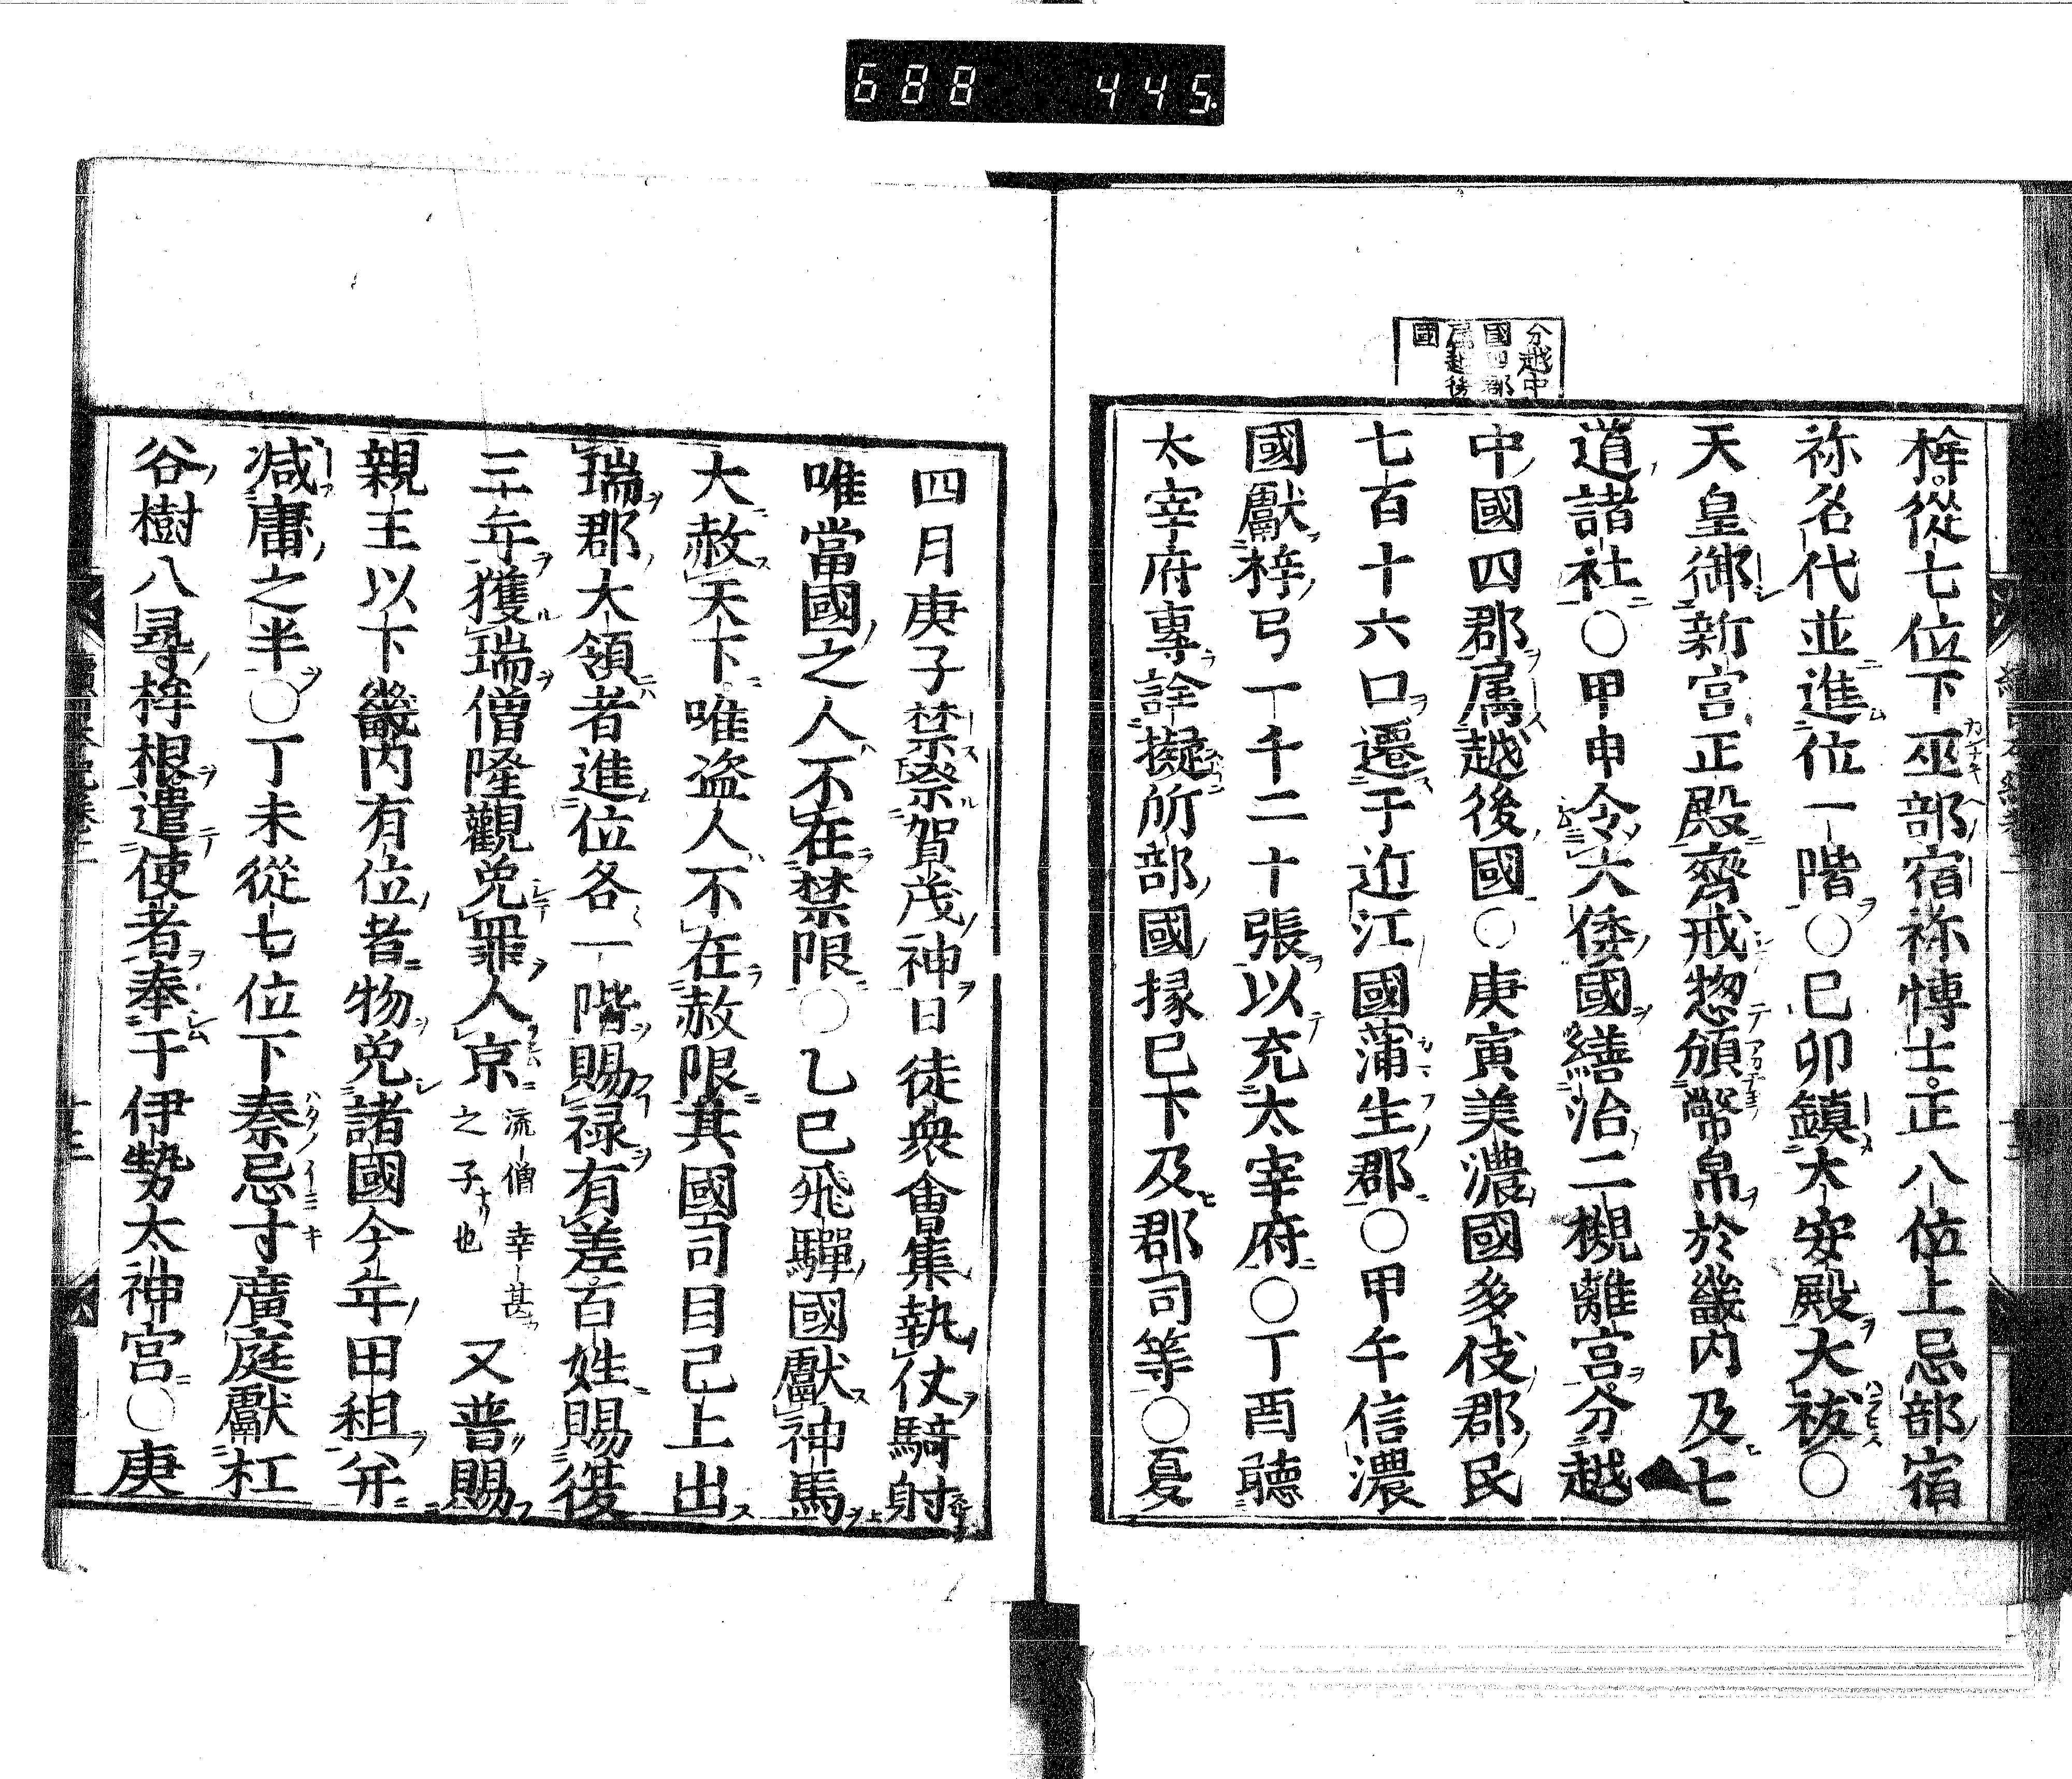 688 445
分越中
國四郡
属越後
國
桙從七位下巫部宿祢博士正八位上忌部宿
祢名代並進位一階〇已卯鎮太安殿大祓〇
天皇御新宮正殿齊戒惣頒幣帛於畿内及七
道諸社〇甲申令大倭國繕治二槻離宮分越
中國四郡属越後國〇庚寅美濃國多伎郡民
七百十六口遷于近江國蒲生郡〇甲午信濃
國獻梓弓一千二十張以充太宰府〇丁酉聴
太宰府專詮擬所部國掾已下及郡司等〇夏
四月庚子禁祭賀茂神日徒衆會集執仗騎射
唯當國之人不在禁限〇乙巳飛驒國獻神馬
大赦天下唯盗人不在赦限其國司目已上出
瑞郡大領者進位各一階賜禄有差百姓賜復
三年獲瑞僧隆觀免罪人京流僧幸甚之子也又普賜
親王以下畿内有位者物免諸國今年田租并
減庸之半〇丁未從七位下秦忌寸廣庭獻杠
谷樹八尋桙根遣使者奉于伊勢太神宮〇庚